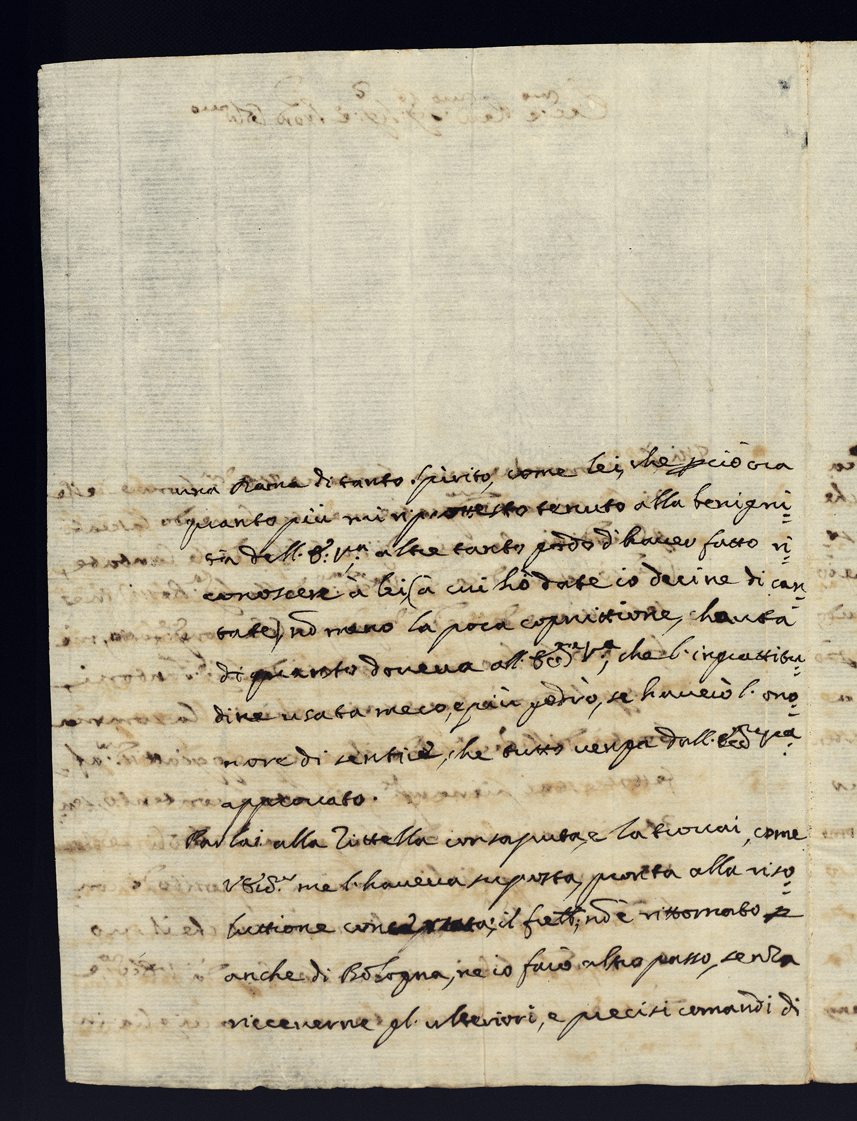 una Dama di tanto spirito, come lei, che perciò ora
quanto più mi riprottesto tenuto alla benigni=
tà dell' altre tanto godo d'haver fatto ri=
conoscere à lei (à cui hò date io decine di can=
tate) nõ meno la poca cognittione, havuta
di quanto doveva all' che l'ingrattitu=
dine usata meco, e più godrò, se haverò l'ono=
nore di sentire, che tutto venga dall'
approvato.
Parlai alla Zittella consaputa, e la trovai, come
me l'haveva suposta, pronta alla riso=
luttione il nõ è rittornato p
anche di Bologna, ne io farò altro passo, senza
riceverne gl' ulteriori, e precisi comandi di